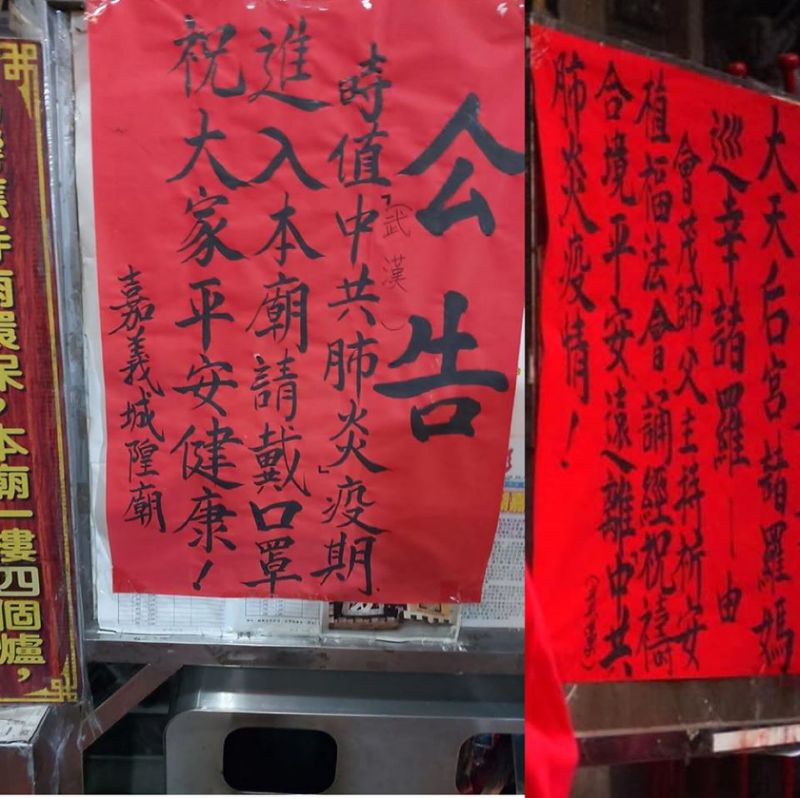 公告
時值「中共(武漢)肺炎」疫期
進入本廟請戴口罩
祝大家平安健康！
嘉義城隍廟
應寺廟環保，本廟一樓四個爐，
大天后宮諸羅媽
巡幸諸羅—由
會茂師父主持祈安
植福法會誦經祝禱
合境平安遠離中共(武漢)
肺炎疫情！